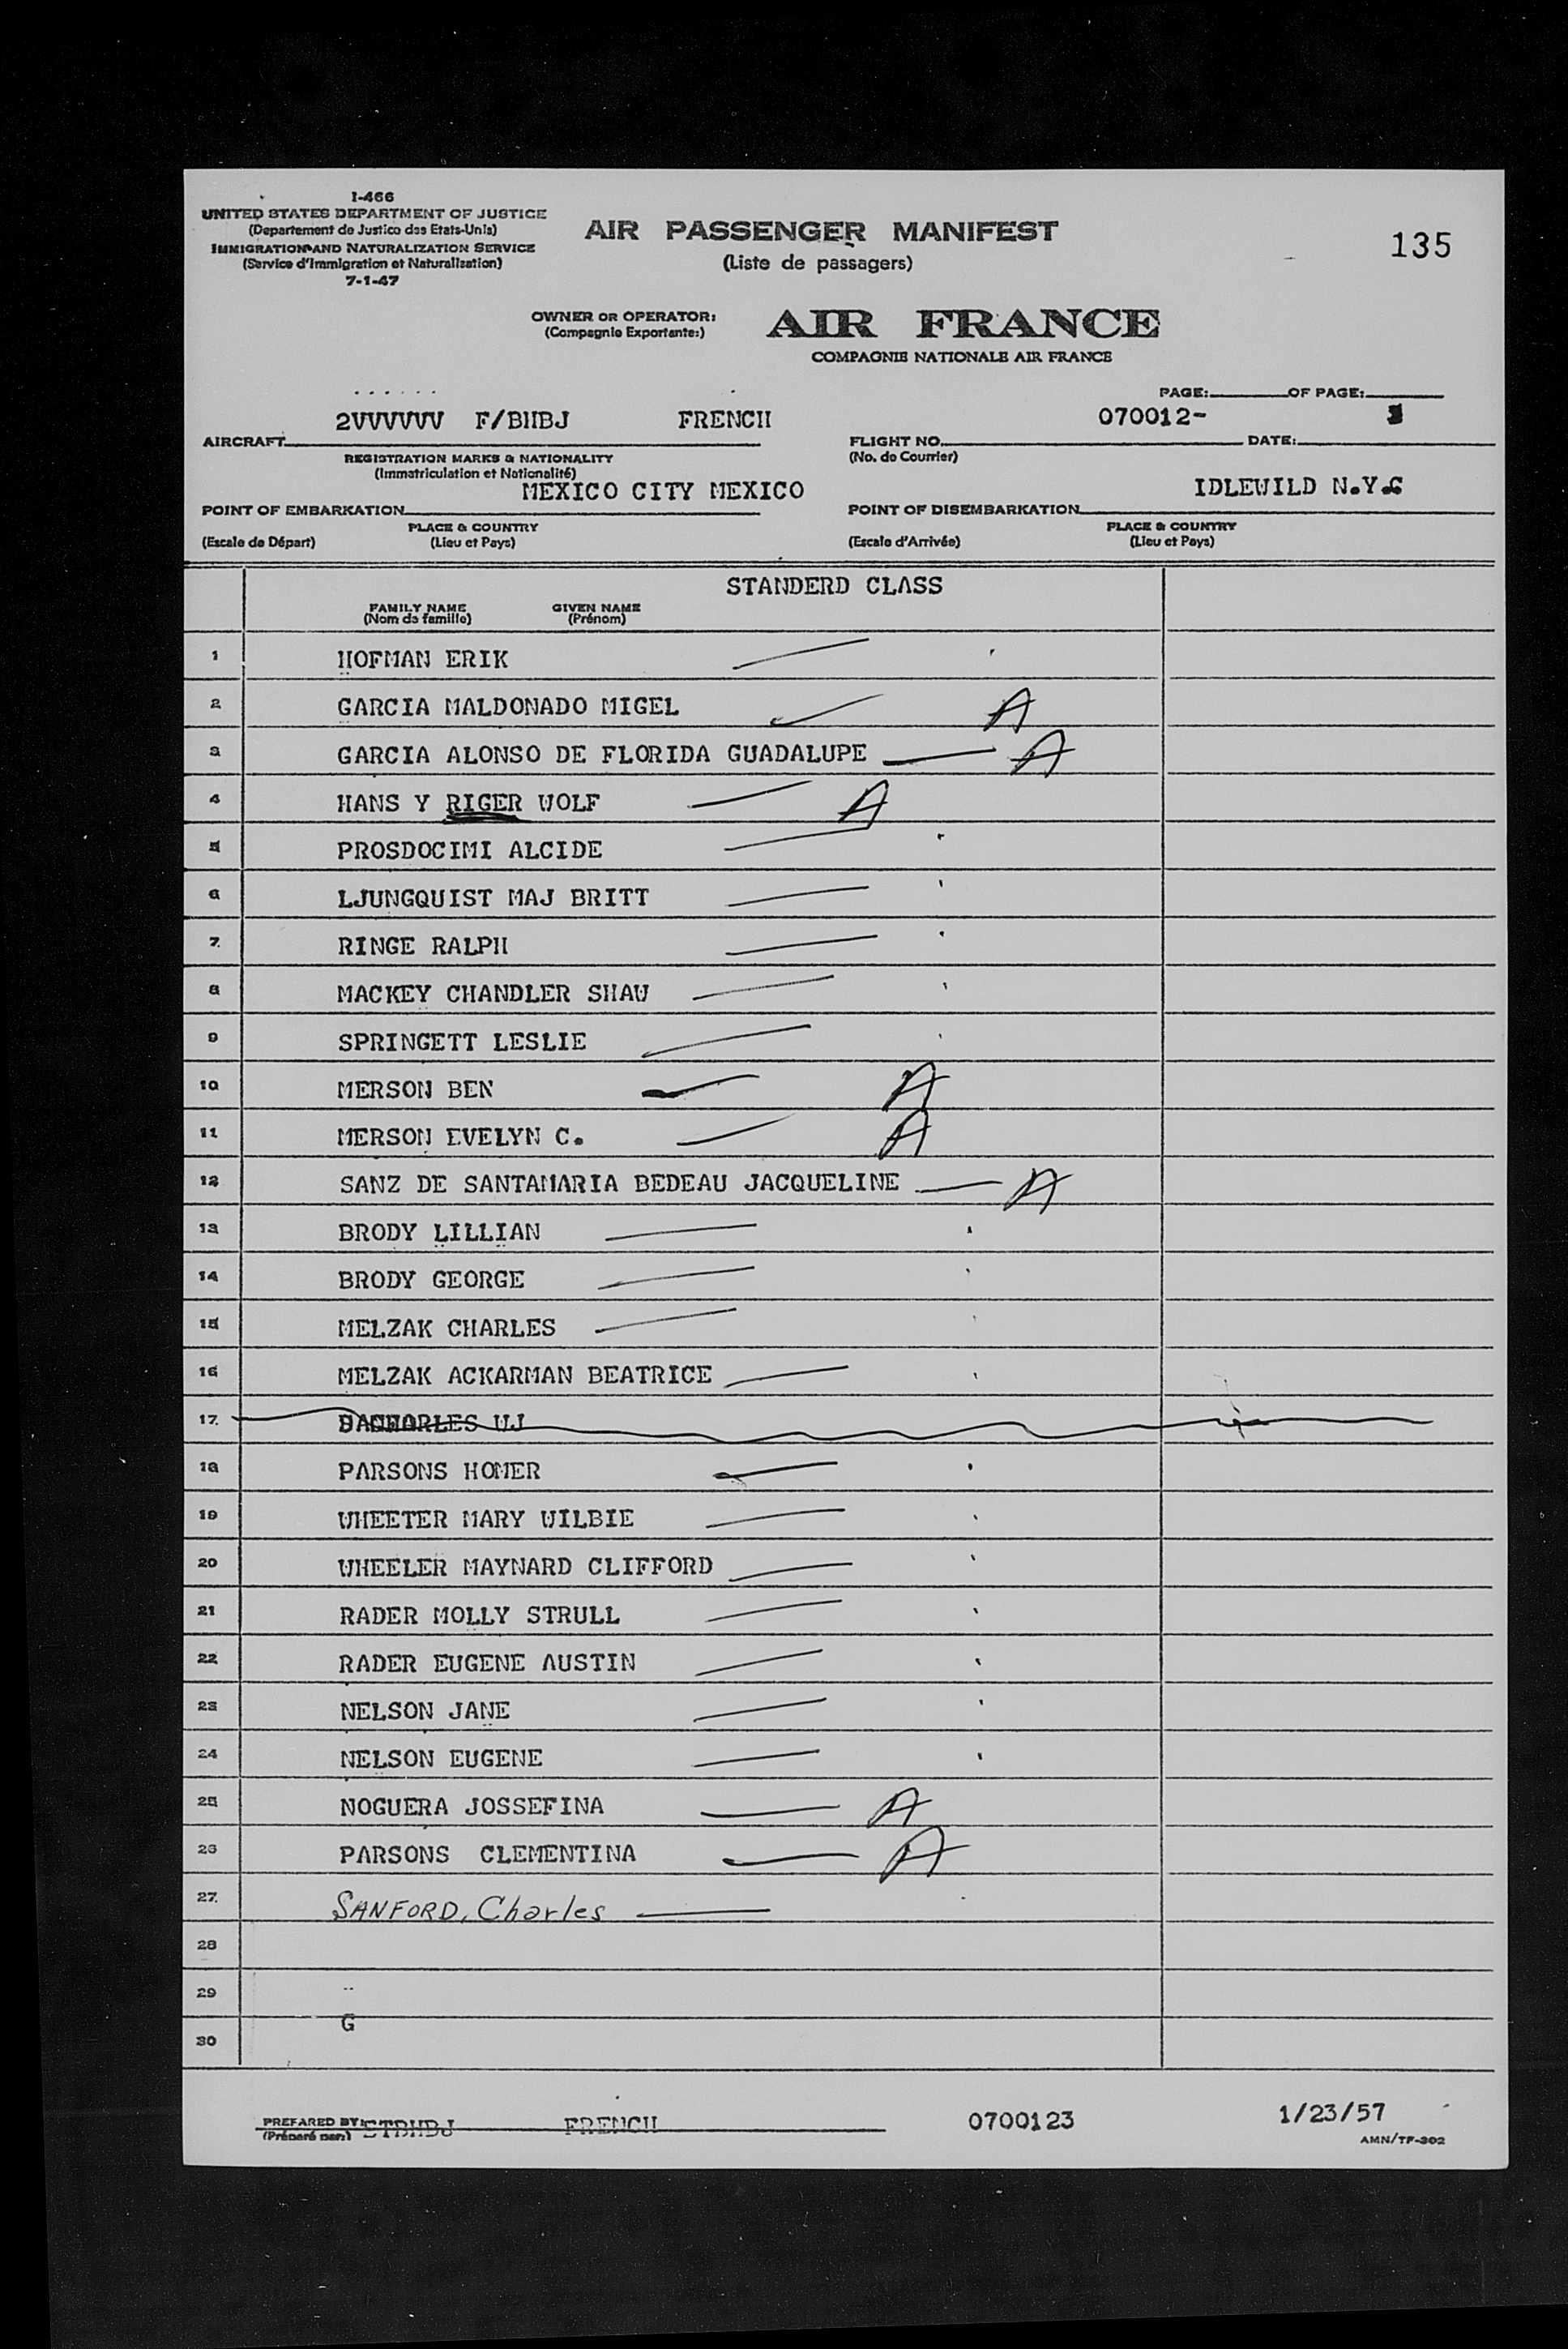 I-466
UNITED STATES DEPARTMENT OF JUSTICE
(Departement de Justice des Etats-Unis)
IMMIGRATION AND NATURALIZATION SERVICE
(Service d'Immigration et Naturalisation)
7-1-47
AIR PASSENGER MANIFEST
(Liste de passagers)
135
OWNER OR OPERATOR:
(Compagnie Exportante:)
AIR FRANCE
COMPAGNIE NATIONALE AIR FRANCE
PAGE: OF PAGE:
2VVVVVV F/BHBJ FRENCH 070012-
AIRCRAFT FLIGHT NO. DATE:
REGISTRATION MARKS & NATIONALITY (No. de Courrier)
(Immatriculation et Nationalité)
MEXICO CITY MEXICO IDLEWILD N.Y.C
POINT OF EMBARKATION POINT OF DISEMBARKATION
PLACE & COUNTRY PLACE & COUNTRY
(Escale de Départ) (Lieu et Pays) (Escale d'Arrivée) (Lieu et Pays)
STANDERD CLASS
FAMILY NAME GIVEN NAME
(Nom de famille) (Prénom)
1 HOFMAN ERIK
2 GARCIA MALDONADO MIGEL A
3 GARCIA ALONSO DE FLORIDA GUADALUPE A
4 HANS Y RIGER WOLF A
5 PROSDOCIMI ALCIDE
6 LJUNGQUIST MAJ BRITT
7 RINGE RALPH
8 MACKEY CHANDLER SHAW
9 SPRINGETT LESLIE
10 MERSON BEN A
11 MERSON EVELYN C. A
12 SANZ DE SANTAMARIA BEDEAU JACQUELINE A
13 BRODY LILLIAN
14 BRODY GEORGE
15 MELZAK CHARLES
16 MELZAK ACKARMAN BEATRICE
17
18 PARSONS HOMER
19 WHEETER MARY WILBIE
20 WHEELER MAYNARD CLIFFORD
21 RADER MOLLY STRULL
22 RADER EUGENE AUSTIN
23 NELSON JANE
24 NELSON EUGENE
25 NOGUERA JOSSEFINA A
26 PARSONS CLEMENTINA A
27 SANFORD, Charles
28
29
G
30
PREPARED BY: FRENCH 0700123 1/23/57
(Préparé par:) AMN/TF-302